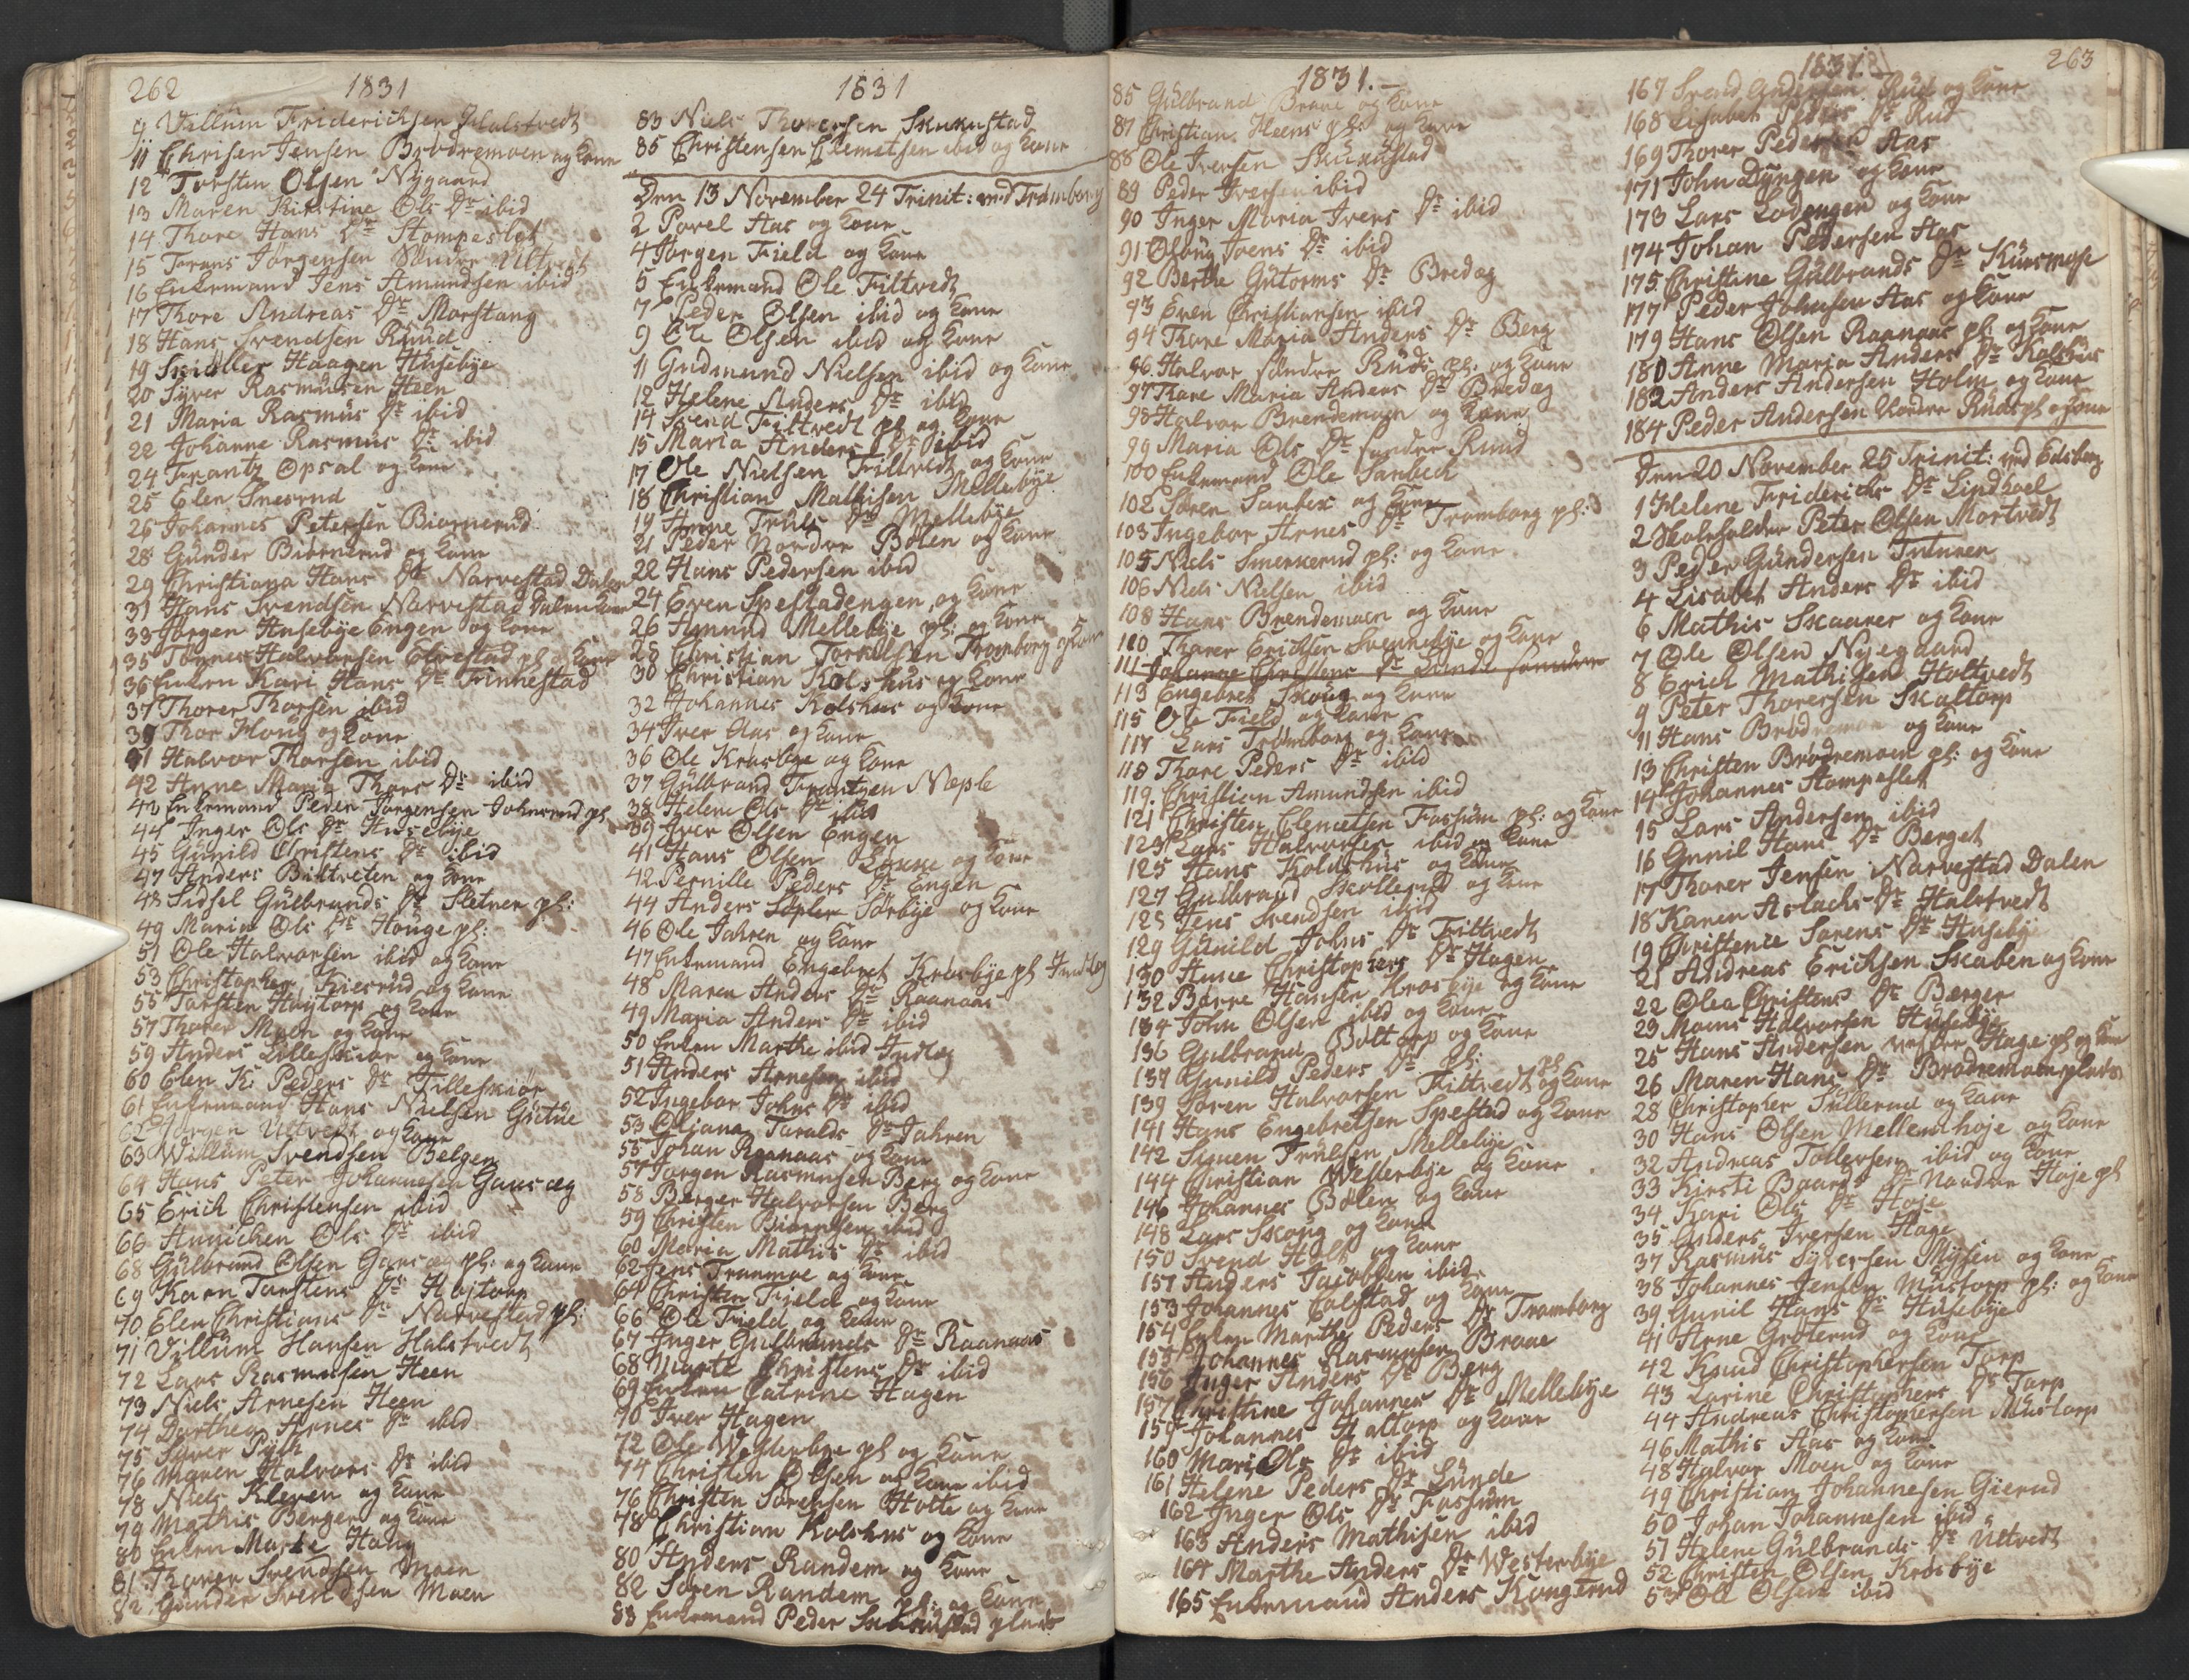 262 1831
9 Villum Friderichsen Halstvedt
11 Chrisen Jensen Brødremoen og Kone
12 Torsten Olsen Nÿgaard
13 Maren Kirstine Ols Dr ibid
14 Thore Hans Dr Stompeslet
15 Frans Jørgensen Søndre Utvedt
16 Enkemand Jens Amundsen ibid
17 Thore Andreas Dr Morstang
18 Hans Svendsen Ruud
19 Haagen Husebÿe
20 Syver Rasmusen Heen
21 Maria Rasmus Dr ibid
22 Johanne Rasmus Dr ibid
24 Frantz Opsal og Kone
25 Elen Snesrud
26 Johannes Petersen Biørnerud
28 Gunder Biørnerud og Kone
29 Christiana Hans Dr Narvestad Dalen
31 Hans Svendsen Narvestad Dalen Kone
33 Jørgen Husebÿe Engen og Kone
35 Tønnes Halvorsen pl og Kone
36 Enken Kari Hans Dr Finnestad
37 Thorer Thorsen ibid
39 Thor Houg og Kone
41 Halvor Thorsen ibid
42 Anne Maria Thors Dr ibid
43 Enkemand Peder Jørgensen Johnsrud pl
44 Inger Ols Dr Husebÿe
45 Gunild Christens Dr ibid
47 Anders Bÿtveten og Kone
48 Sidsel Gulbrands Dr Sletner pl:
49 Maria Ols Dr Houge pl:
51 Ole Halvorsen ibid og Kone
53 Christopher Kiesrud og Kone
55 Torsten Haÿtorp og Kone
57 Thorer Moen og Kone
59 Anders Lilleskiør og Kone
60 Elen K: Peders Dr Lilleskiør
61 Enkemand Hans Nielsen Gutue
62 Jørgen Utvedt og Kone
63 Willum Svendsen Belgen
64 Hans Peter Johannesen Gaasæg
65 Erich Christensen ibid
66 Annichen Ols Dr ibid
68 Gulbrand Olsen Gaasæg pl: og Kone
69 Karn Torstens Dr Højtorp
70 Elen Christians Dr Narvestad pl:
71 Villum Hansen Halstvedt
72 Lars Rasmusen Heen
73 Niels Arnesen Heen
74 Dorthea Arnes Dr ibid
75 Syver
76 Maren Halvors Dr ibid
78 Niels Kleven og Kone
79 Mathis Berger og Kone
80 Enken Marte Houg
81 Thorer Svendsen Moen
82 Gunder Svendsen Moen
1831
83 Niels Thoresen Skukustad
85 Christensen Clemetsen ibid og Kone
Den 13 November 24 Trinit: ved Trømborg
2 Povel Aas og Kone
4 Jørgen Field og Kone
5 Enkemand Ole Filtvedt
7 Peder Olsen ibid og Kone
9 Ole Olsen ibid og Kone
11 Gudmund Nielsen ibid og Kone
12 Helene Anders Dr ibid
14 Svend Filtvedt pl og Kone
15 Maria Anders Dr ibid
17 Ole Nielsen Filtvedt og Kone
18 Christian Mathisen Mellebÿe
19 Anne Truls Dr Mellebÿe
21 Peder Nordre Bølen og Kone
22 Hans Pedersen ibid
24 Even Spestadengen og Kone
26 Amund Mellebÿe pl: og Kone
28 Christian Torkelsen Trømborg og Kone
30 Christian Kolshus og Kone
32 Johannes Kolshus og Kone
34 Iver Aas og Kone
36 Ole Krosbÿe og Kone
37 Gulbrand Frantzen Næple
38 Helene Ols Dr ibid
39 Iver Olsen Engen
41 Hans Olsen og Kone
42 Pernille Peders Dr Engen
44 Anders Sørbÿe og Kone
46 Ole Jahren og Kone
47 Enkemand Engebret Krosbÿe pl Indlæg
48 Maren Anders Dr Raanaas
49 Maria Anders Dr ibid
50 Enken Marthe ibid Indlæg
51 Anders Arnesen ibid
52 Ingebor Johns Dr ibid
53 Oliana Taralds Dr Jahren
55 Johan Raanaas og Kone
57 Jørgen Rasmusen Berg og Kone
58 Berger Halvorsen Berg
59 Christen Biørnsen ibid
60 Maria Mathis Dr ibid
62 Jens Tranmoe og Kone
64 Christen Field og Kone
66 Ole Field og Kone
67 Inger Gulbrands Dr Raanaas
68 Marte Christens Dr ibid
69 Enken Catrine Hagen
70 Iver Hagen
72 Ole Westerbÿe pl og Kone
74 Christen Olsen og Kone ibid
76 Christen Sørensen Holte og Kone
78 Christian Kolshus og Kone
80 Anders Randem og Kone
82 Søren Randem pl: og Kone
83 Enkemand Peder Skukustad plads
1831.
85 Gulbrand Braae og Kone
87 Christian Heens pl: og Kone
88 Ole Iversen Skukustad
89 Peder Iversen ibid
90 Inger Maria Ivers Dr ibid
91 Oloug Ivers Dr ibid
92 Berthe Gutorms Dr Bredæg
93 Even Christiansen ibid
94 Thore Maria Anders Dr Berg
96 Halvor søndre Ruds pl: og Kone
97 Thore Maria Anders Dr Bredæg
98 Halvor Brendemoen og Kone
99 Maria Ols Dr søndre Ruud
100 Enkemand Ole Sanbech
102 Søren Sanbek og Kone
103 Ingebor Arnes Dr Trømborg pl:
105 Niels Smerkerud pl: og Kone
106 Niels Nielsen ibid
108 Hans Brendemoen og Kone
110 Thorer Erichsen Svennebÿe og Kone
111 Johanne Christens Dr Lunde søndre
113 Engebret Skoug og Kone
115 Ole Field og Kone
117 Lars Trømborg og Kone
118 Thore Peders Dr ibid
119 Christian Amundsen ibid
121 Christen Clemetsen Fossum pl: og Kone
123 Lars Halvorsen ibid og Kone
125 Hans Kolashus og Kone
127 Gulbrand Skollerud og Kone
128 Jens Svendsen ibid
129 Gunild Johns Dr Filtvedt
130 Anne Christophers Dr Hagen
132 Børre Hansen Krosbÿe og Kone
134 John Olsen ibid og Kone
136 Gulbrand Boltorp og Kone
137 Gunild Peders Dr pl:
139 Søren Halvorsen Filtvedt pl og Kone
141 Hans Engebretsen Spestad og Kone
142 Simen Trulsen Mellebÿe
144 Christian Westerbÿe og Kone
146 Johannes Bølen og Kone
148 Lars Skoug og Kone
150 Svend Holt og Kone
151 Anders Jacobsen ibid
153 Johannes Calstad og Kone
154 Enken Marthe Peders Dr Trømborg
155 Johannes Rasmusen Braae
156 Inger Anders Dr Berg
157 Christine Johannes Dr Mellebÿe
159 Johannes Haltorp og Kone
160 Mari Ols Dr ibid
161 Helene Peders Dr Lunde
162 Inger Ols Dr Fossum
163 Anders Mathisen ibid
164 Marthe Anders Dr Westerbÿe
165 Enkemand Anders Kongerud
1831. 263
167 Svend Andersen Rud og Kone
168 Lisabet Peders Dr Rud
169 Thorer Pedersen Aas
171 John Dyngen og Kone
173 Lars Lodengen og Kone
174 Johan Pedersen Aas
175 Christine Gulbrands Dr Kursmose
177 Peder Johnsen Aas og Kone
179 Hans Olsen Raanaas pl: og Kone
180 Anne Maria Anders Dr Kolshus
182 Anders Andersen Holm og Kone
184 Peder Andersen Nordre Ruds pl og Kone
Den 20 November 25 Trinit: ved Edsberg
1 Helene Friderichs Dr Lindhoel
2 Skoleholder Peter Olsen Mortvedt
3 Peder Gundersen
4 Lisabet Anders Dr ibid
6 Mathis Skaarer og Kone
7 Ole Olsen Nÿegaard
8 Erich Mathisen Holtvedt
9 Peter Thorersen Skaltorp
11 Hans Brødremoen og Kone
13 Christen Brødremoen pl: og Kone
14 Johannes Stompeslet
15 Lars Andersen ibid
16 Gunil Hans Dr Berget
17 Thorer Jensen Narvestad Dalen
18 Karen Aslachs Dr Halstvedt
19 Christence Sørens Dr Husebÿ
21 Andreas Erichsen Skaben og Kone
22 Olea Christens Dr Berger
23 Mons Halvorsen Husebÿe
25 Hans Andersen vestre Hage pl og Kone
26 Maren Hans Dr Brødremoen plads
28 Christopher Sullerud og Kone
30 Hans Olsen Mellemhøje og Kone
32 Andreas Tollefsen ibid og Kone
33 Kirsti Baars Dr Nordre Høje pl
34 Kari Ols Dr Høje
35 Anders Iversen Hage
37 Rasmus Syversen Mÿsen og Kone
38 Johannes Jensen Mustorp pl: og Kone
39 Gunil Hans Dr Husebÿe
41 Arne Grøterud og Kone
42 Knud Christophersen Torp
43 Larine Christophers Dr Torp
44 Andreas Christophersen Mustorp
46 Mathis Aas og Kone
48 Halvor Moen og Kone
49 Christian Johannesen Gierud
50 Johan Johannesen ibid
51 Helene Gulbrands Dr Utvedt
52 Christen Olsen Krosbÿe
53 Ole Olsen ibid